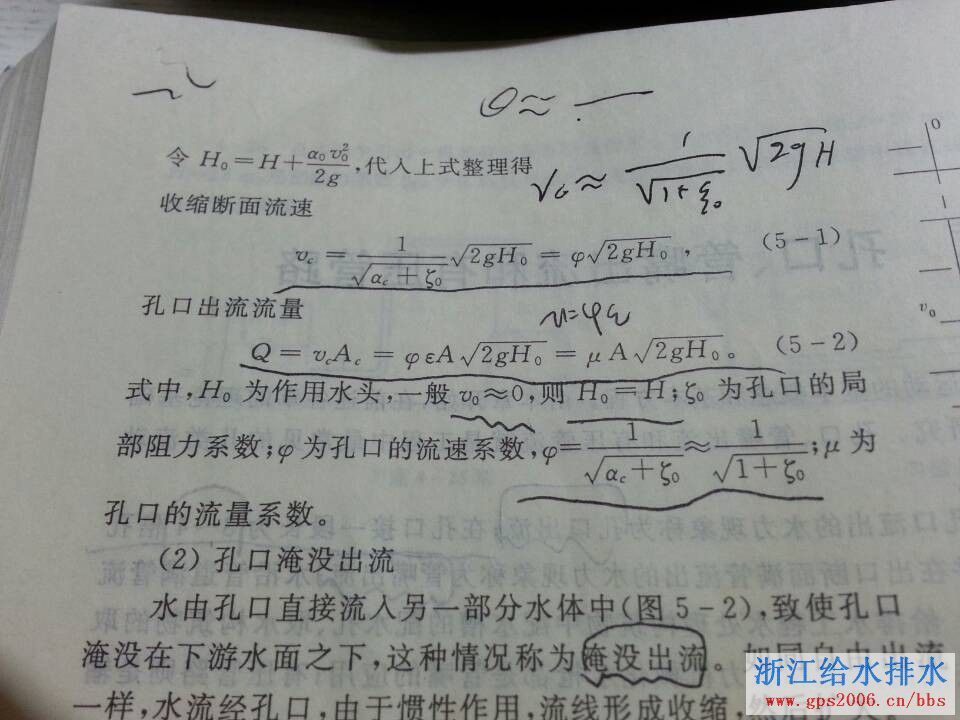 Q ≈
令 H₀=H+α₀v₀²/2g,代入上式整理得
v_c ≈ 1/√(1+ξ₀) √2gH
收缩断面流速
v_c = 1/√(α_c+ζ₀) √2gH₀ = φ√2gH₀, (5-1)
孔口出流流量
μ=φε
Q = v_cA_c = φεA√2gH₀ = μA√2gH₀。 (5-2)
式中,H₀为作用水头,一般v₀≈0,则H₀=H;ζ₀为孔口的局
部阻力系数;φ为孔口的流速系数,φ=1/√(α_c+ζ₀)≈1/√(1+ζ₀);μ为
孔口的流量系数。
(2) 孔口淹没出流
水由孔口直接流入另一部分水体中(图5-2),致使孔口
淹没在下游水面之下,这种情况称为淹没出流。如同自由出流
一样,水流经孔口,由于惯性作用,流线形成收缩,
0
1
v₀
浙江给水排水
www.gps2006.cn/bbs